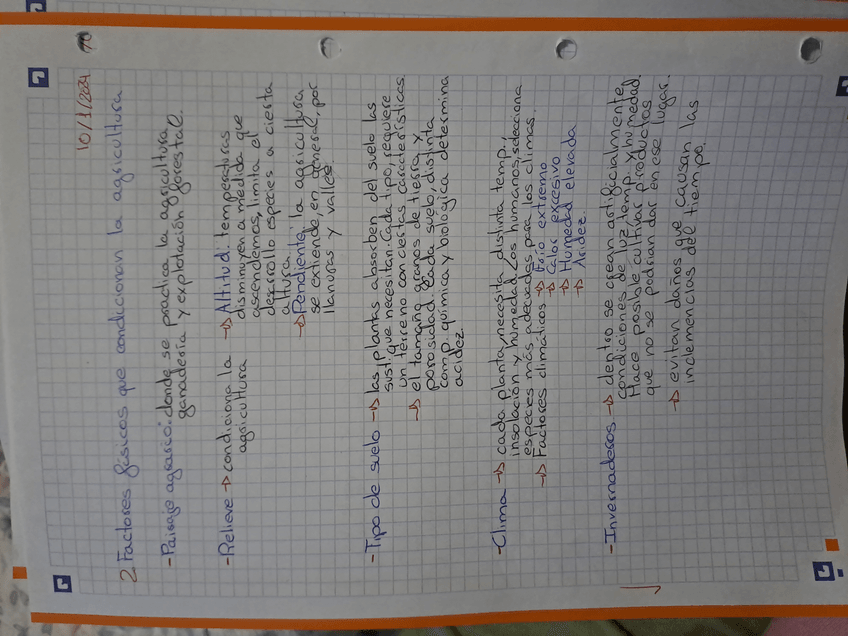 10/1/2024
2. Factores físicos que condicionan la agricultura
- Paisaje agrario: donde se practica la agricultura,
ganadería y explotación forestal.
- Relieve → condiciona la
agricultura
→ Altitud: temperaturas
disminuyen a medida que
ascendemos, limita el
desarrollo especies a cierta
altura.
→ Pendiente: la agricultura
se extiende, en general, por
llanuras y valles.
- Tipo de suelo → las plantas absorben del suelo las
sust. que necesitan. Cada tipo, requiere
un terreno con ciertas características.
→ el tamaño granos de tierra y
porosidad. Cada suelo, distinta
comp. química y biológica determina
acidez.
- Clima → cada planta, necesita distinta temp.,
insolación y humedad. Los humanos, selecciona
especies más adecuadas para los climas.
→ Factores climáticos → Frío extremo
→ Calor excesivo
→ Humedad elevada
→ Aridez.
- Invernaderos → dentro se crean artificialmente
condiciones de luz, temp. y humedad.
Hace posible cultivar productos
que no se podrían dar en ese lugar.
→ evitan daños que causan las
inclemencias del tiempo.